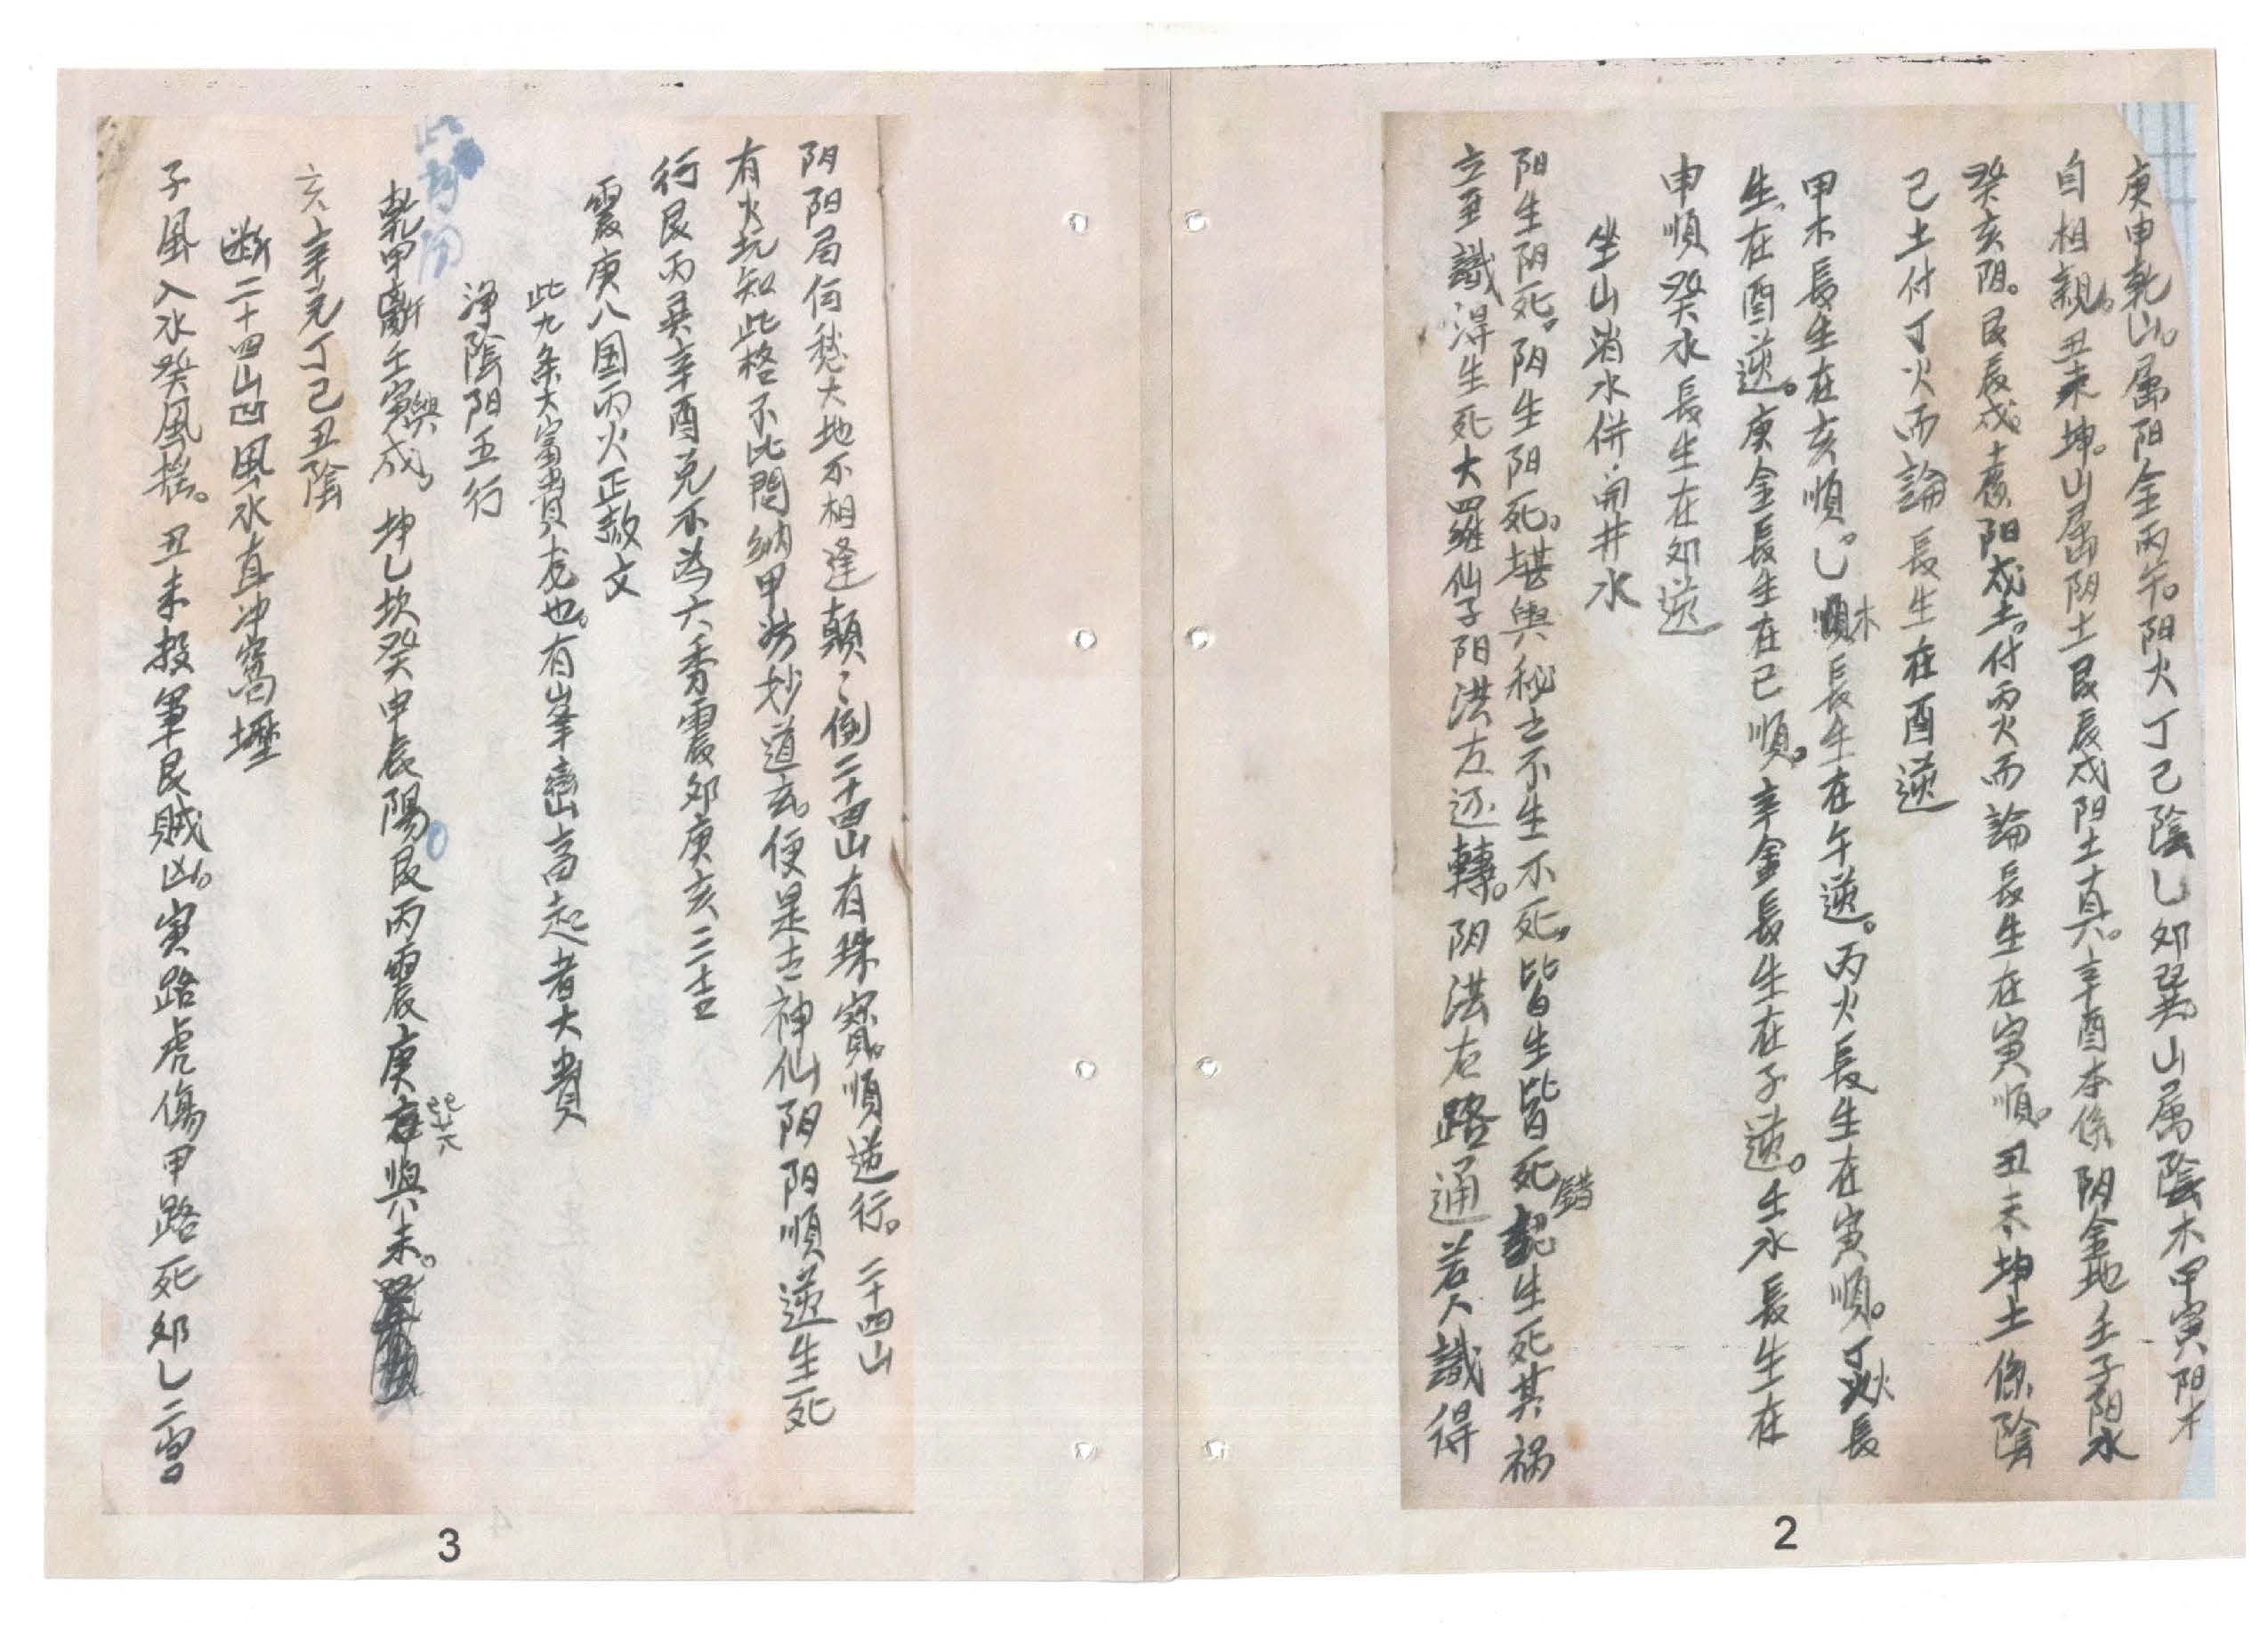 庚申乾山。属阳金丙午。阳火丁己陰乚卯巽山属陰木甲寅阳木
自相親。丑未坤。山属阴土艮辰戍阳土真。辛酉本係阴金地壬子阳水
癸亥阴。艮辰戍土癝阳戍土。付丙火而論長生在寅順。丑未坤土係陰
己土付丁火而論長生在酉逆
甲木長生在亥順。乚木長生在午逆。丙火長生在寅順。丁火長
生在酉逆。庚金長生在己順。辛金長生在子逆。壬水長生在
申順癸水長生在卯逆
坐山消水併開井水
阳生阴死。阴生阳死。堪輿秘之不生不死。皆生皆死錯認生死其禍
立至識得生死大四維仙子阳洪左还轉。阴洪右路通若人識得
2
阴阳局何愁大地不相逢顛〻倒二十四山有珠寶。順逆行。二十四山
有火坑知此格不比閒納甲妙道玄。便是神仙阴阳順逆生死
行艮丙巽辛酉兑不為六秀震卯庚亥三吉
震庚八国丙火正赦文
此九条大富貴龙也。有峯巒高起者大貴
淨陰阳五行
乾甲離壬寅與戍。坤乚坎癸申辰陽艮丙震庚與未。巽
亥辛兑丁己丑陰
断二十四山凹風水直冲窩壢
子風入水癸風摇。丑未投軍艮賊凶。寅路虎傷甲路死卯乚二宫
3